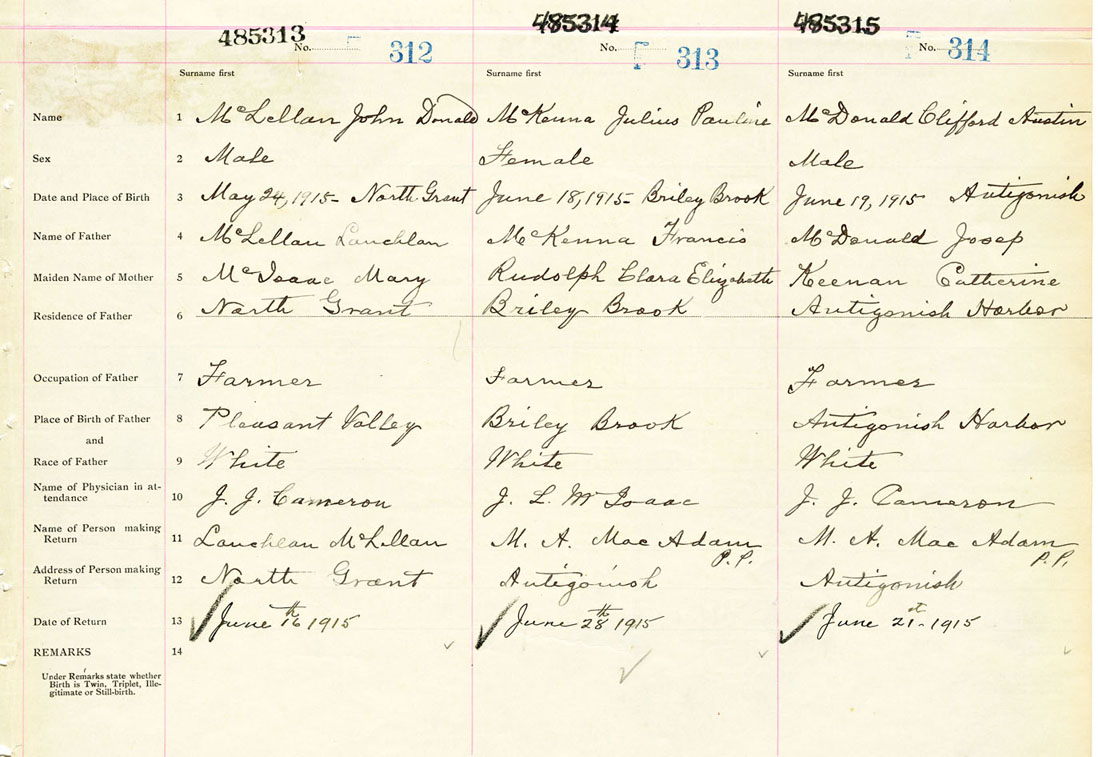 485313 485314 485315
No. F 312 No. F 313 No. F 314
Surname first Surname first Surname first
Name 1 McLellan John Donald McKenna Julius Pauline McDonald Clifford Austin
Sex 2 Male Female Male
Date and Place of Birth 3 May 24, 1915- North Grant June 18, 1915- Briley Brook June 19, 1915 Antigonish
Name of Father 4 McLellan Lauchlan McKenna Francis McDonald Josep
Maiden Name of Mother 5 McIsaac Mary Rudolph Clara Elizabeth Keenan Catherine
Residence of Father 6 North Grant Briley Brook Antigonish Harbor
Occupation of Father 7 Farmer Farmer Farmer
Place of Birth of Father 8 Pleasant Valley Briley Brook Antigonish Harbor
and
Race of Father 9 White White White
Name of Physician in at-
tendance 10 J. J. Cameron J. L. McIsaac J. J. Cameron
Name of Person making
Return 11 Lauchlan McLellan M. A. Mac Adam P.P. M. A. Mac Adam P.P.
Address of Person making
Return 12 North Grant Antigonish Antigonish
Date of Return 13 June 16th 1915 June 28th 1915 June 21st 1915
REMARKS 14
Under Remarks state whether
Birth is Twin, Triplet, Ille-
gitimate or Still-birth.